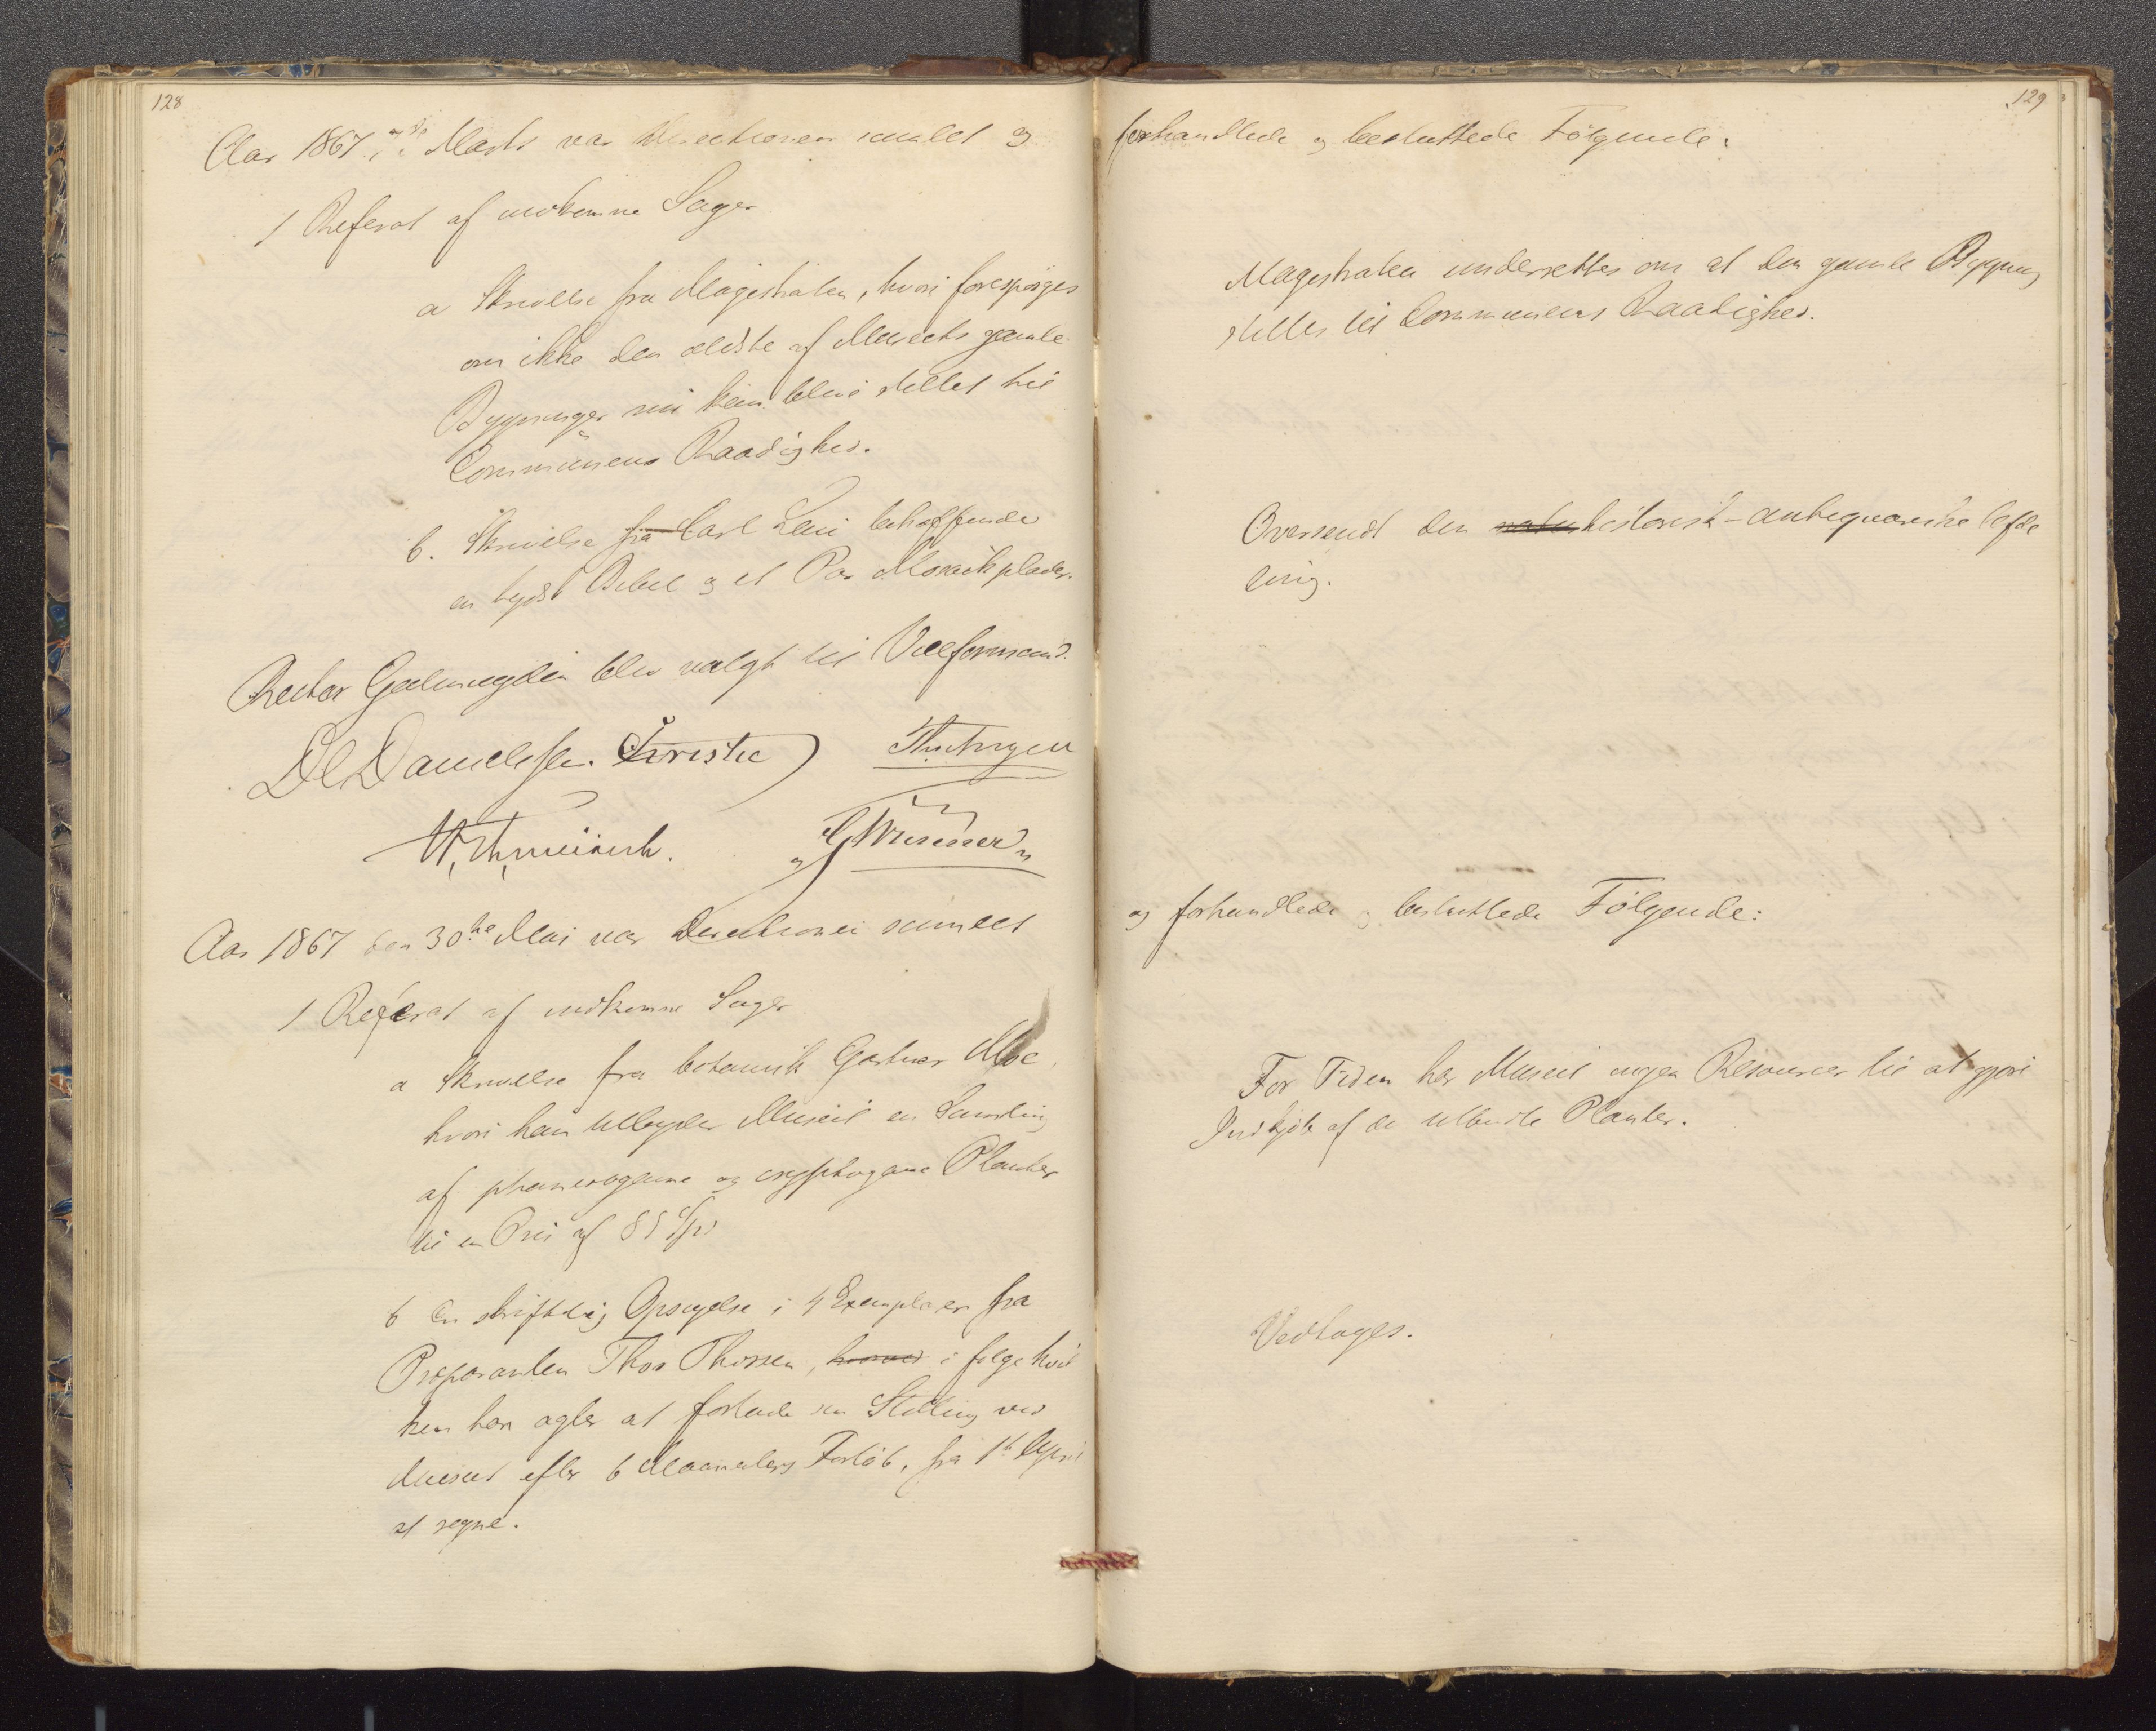 128
Aar 1867 Marts var Directionen samlet og
1 Referat af indkomne Sager
a Skrivelse fra Magistraten, hvori forespørges
om ikke den ældste af Museets gamle
Bygninger nu kan blive stillet til
Communens Raadighed.
b. Skrivelse fra Carl Lani betreffende
en tydsk Bibel og et Par Mosaikplader.
Rector blev valgt til Viceformand.
DC Danielssen. Christie
Aar 1867 den 30te Mai var Directionen samlet
1 Referat af indkomne Sager
a Skrivelse fra botanisk Gartner Moe,
hvori han tilbyder Museet en Samling
af phanerogame og cryptogame Planter
til en Pris af 85 Spd
b En skriftlig Opsigelse i 4 Exemplarer fra
Præparanten Thor Thorsen, hvorved i følge hvil
ken han agter at forlade sin Stilling ved
Museet efter 6 Maaneders Forløb, fra 1st April
at regne.
129
forhandlede og besluttede Følgende:
Magistraten underrettes om at den gamle Bygning
stilles til Communens Raadighed.
Oversendt den historisk-antiqvariske Afde
ling.
og forhandlede og besluttede Følgende:
For Tiden har Museet ingen Resourcer til at gjøre
Indkjøb af de tilbudte Planter.
Vedtoges.